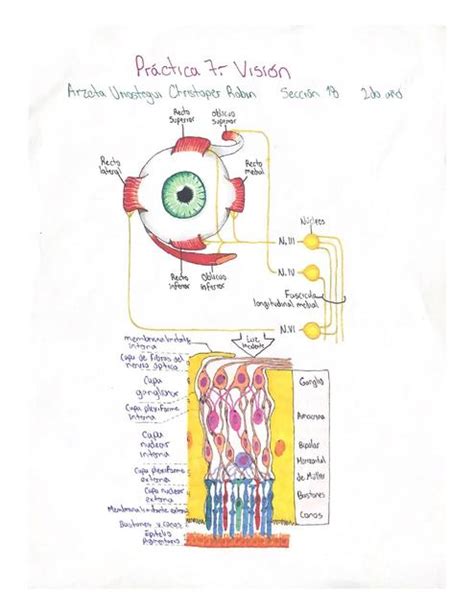 Práctica 7.- Visión
Arzeta Unostegui Christoper Robin Sección 18 2do año
Recto
Superior
Oblicuo
Superior
Recto
lateral
Recto
medial
Núcleos
N.III
N.IV
Fascículo
longitudinal medial
N.VI
Recto
inferior
Oblicuo
inferior
Luz
Incidente
membrana limitante
interna
Capa de fibras del
nervio óptico
Capa
ganglionar
Capa plexiforme
interna
Capa
nuclear
interna
Capa plexiforme
externa
Capa nuclear
externa
Membrana limitante externa
Bastones y conos
Epitelio
Pigmentario
Ganglio
Amacrina
Bipolar
Horizontal
de Müller
Bastones
Conos